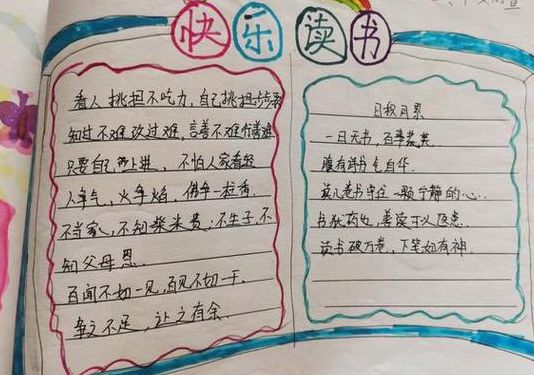 快乐读书
看人挑担不吃力,自己挑担步步
知过不难改过难,言善不难行善难
只要自己上进,不怕人家看轻
人争气,火争焰,佛争一柱香.
不当家,不知柴米贵;不生子,不
知父母恩
百闻不如一见,百见不如一干.
争之不足,让之有余.
日积月累
一日无书,百事荒芜.
腹有诗书气自华.
读几卷书守住一颗宁静的心.
书犹药也,善读可以医愚.
读书破万卷,下笔如有神.